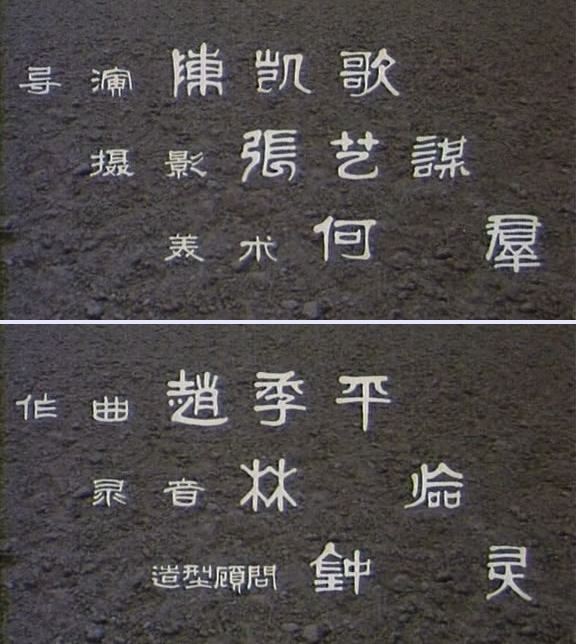 导演 陳凯歌
摄影 張艺謀
美术 何羣
作曲 趙季平
录音 林临
造型顧問 鈡灵